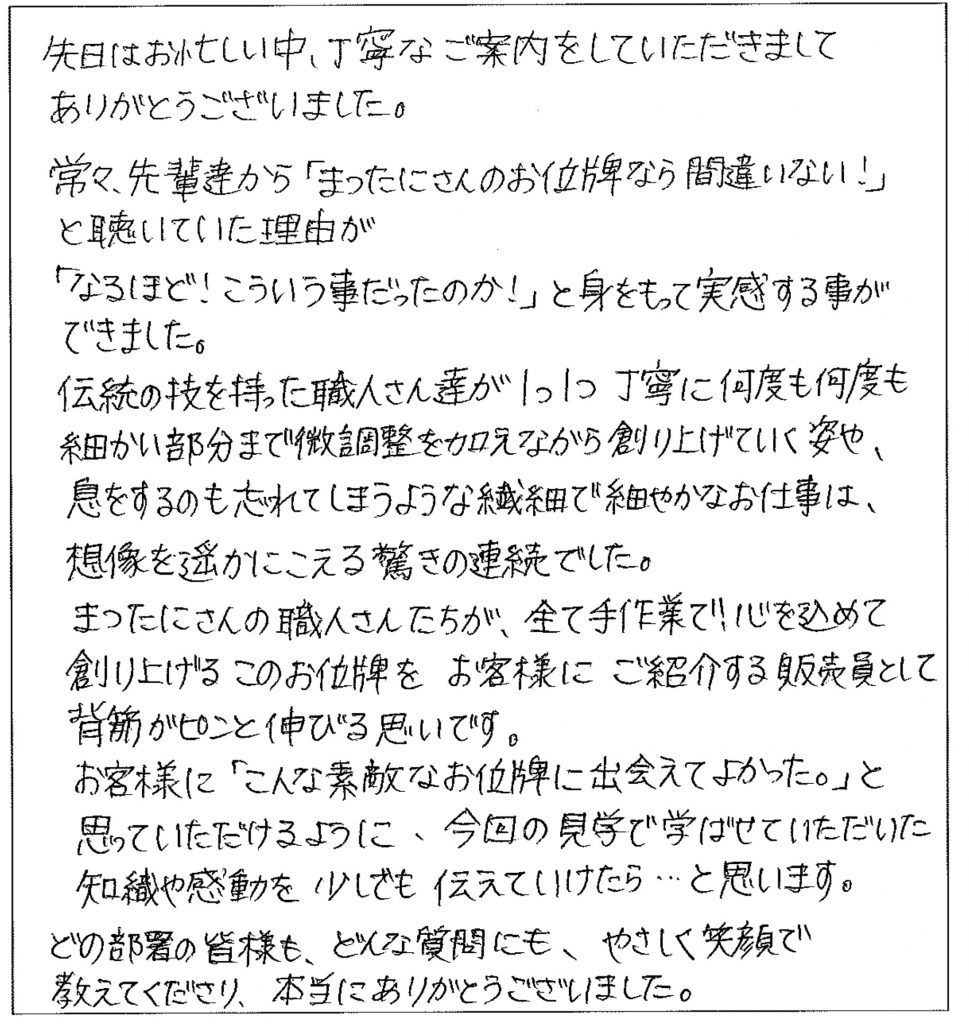 先日はお忙しい中、丁寧なご案内をしていただきまして
ありがとうございました。
常々、先輩達から「まったにさんのお位牌なら間違いない！」
と聴いていた理由が
「なるほど！こういう事だったのか！」と身をもって実感する事が
できました。
伝統の技を持った職人さん達が1つ1つ 丁寧に何度も何度も
細かい部分まで微調整を加えながら創り上げていく姿や、
息をするのも忘れてしまうような繊細で細やかなお仕事は、
想像を遥かにこえる驚きの連続でした。
まつたにさんの職人さんたちが、全て手作業で、心を込めて
創り上げるこのお位牌を お客様に ご紹介する販売員として
背筋がピンと伸びる思いです。
お客様に「こんな素敵なお位牌に出会えてよかった。」と
思っていただけるように、今回の見学で学ばせていただいた
知識や感動を 少しでも 伝えていけたら…と思います。
どの部署の皆様も、どんな質問にも、やさしく笑顔で
教えてくださり、本当にありがとうございました。